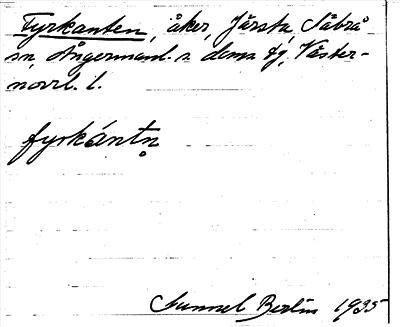 Fyrkanten, åker, Järsta, Säbrå
sn, Ångermanl. s. doms tg, Väster-
norrl. l.
fyrkántn̥
Sunnel Berlin 1935